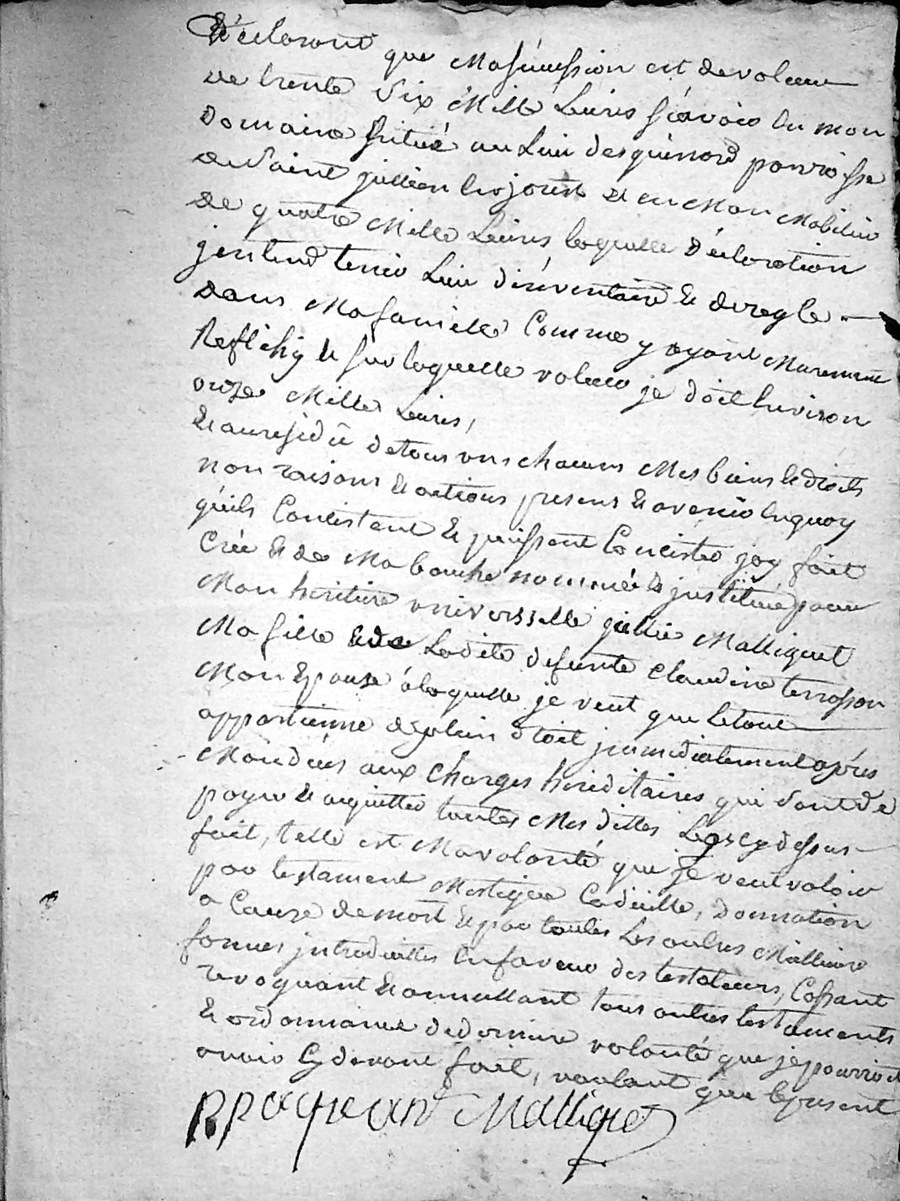 Déclarant que Ma sucession est de valeur
de trente Six Mille Livres sçavoir du mon
Domaine situé au Lieu des parroisse
de Saint jullien et en Mon Mobilier
de quatre Mille Livres laquelle Déclaration
jentend tenir Lieu dinventaire & de regle
dans Ma famille Comme y ayant Murement
Reflechy & sur laquelle valeur je doit environ
onze Mille Livres,
& au residu de tous uns chacuns Mes biens & droits
non raisons & actions presens & avenir en quoy
quils Concistent & puissent Concister jay fait
Créé & de Ma bouche nommée & jnstitué pour
Mon héritiere universelle jullie Malliquet
Ma fille & de Ladite defunte Claudine terrasson
Mon Epouse a laquelle je veut que le tout
appartienne de plein droit jmmediatement après
Mon déces aux Charges héréditaires qui sont de
payer & aquitter toutes Mes dittes Legs cy dessus
fait, telle est Ma volonté que je veut valoir
par testament Mistique Codicille, Donnation
a Cause de mort & par toutes Les autres Millieure
formes jntroduittes En faveur des testateurs, Cassant
revoquant & annullant tous autres testaments
& ordonnance de derniere volonté que je pourrois
avoir Cy devant fait, voulant que le present
Malliquet